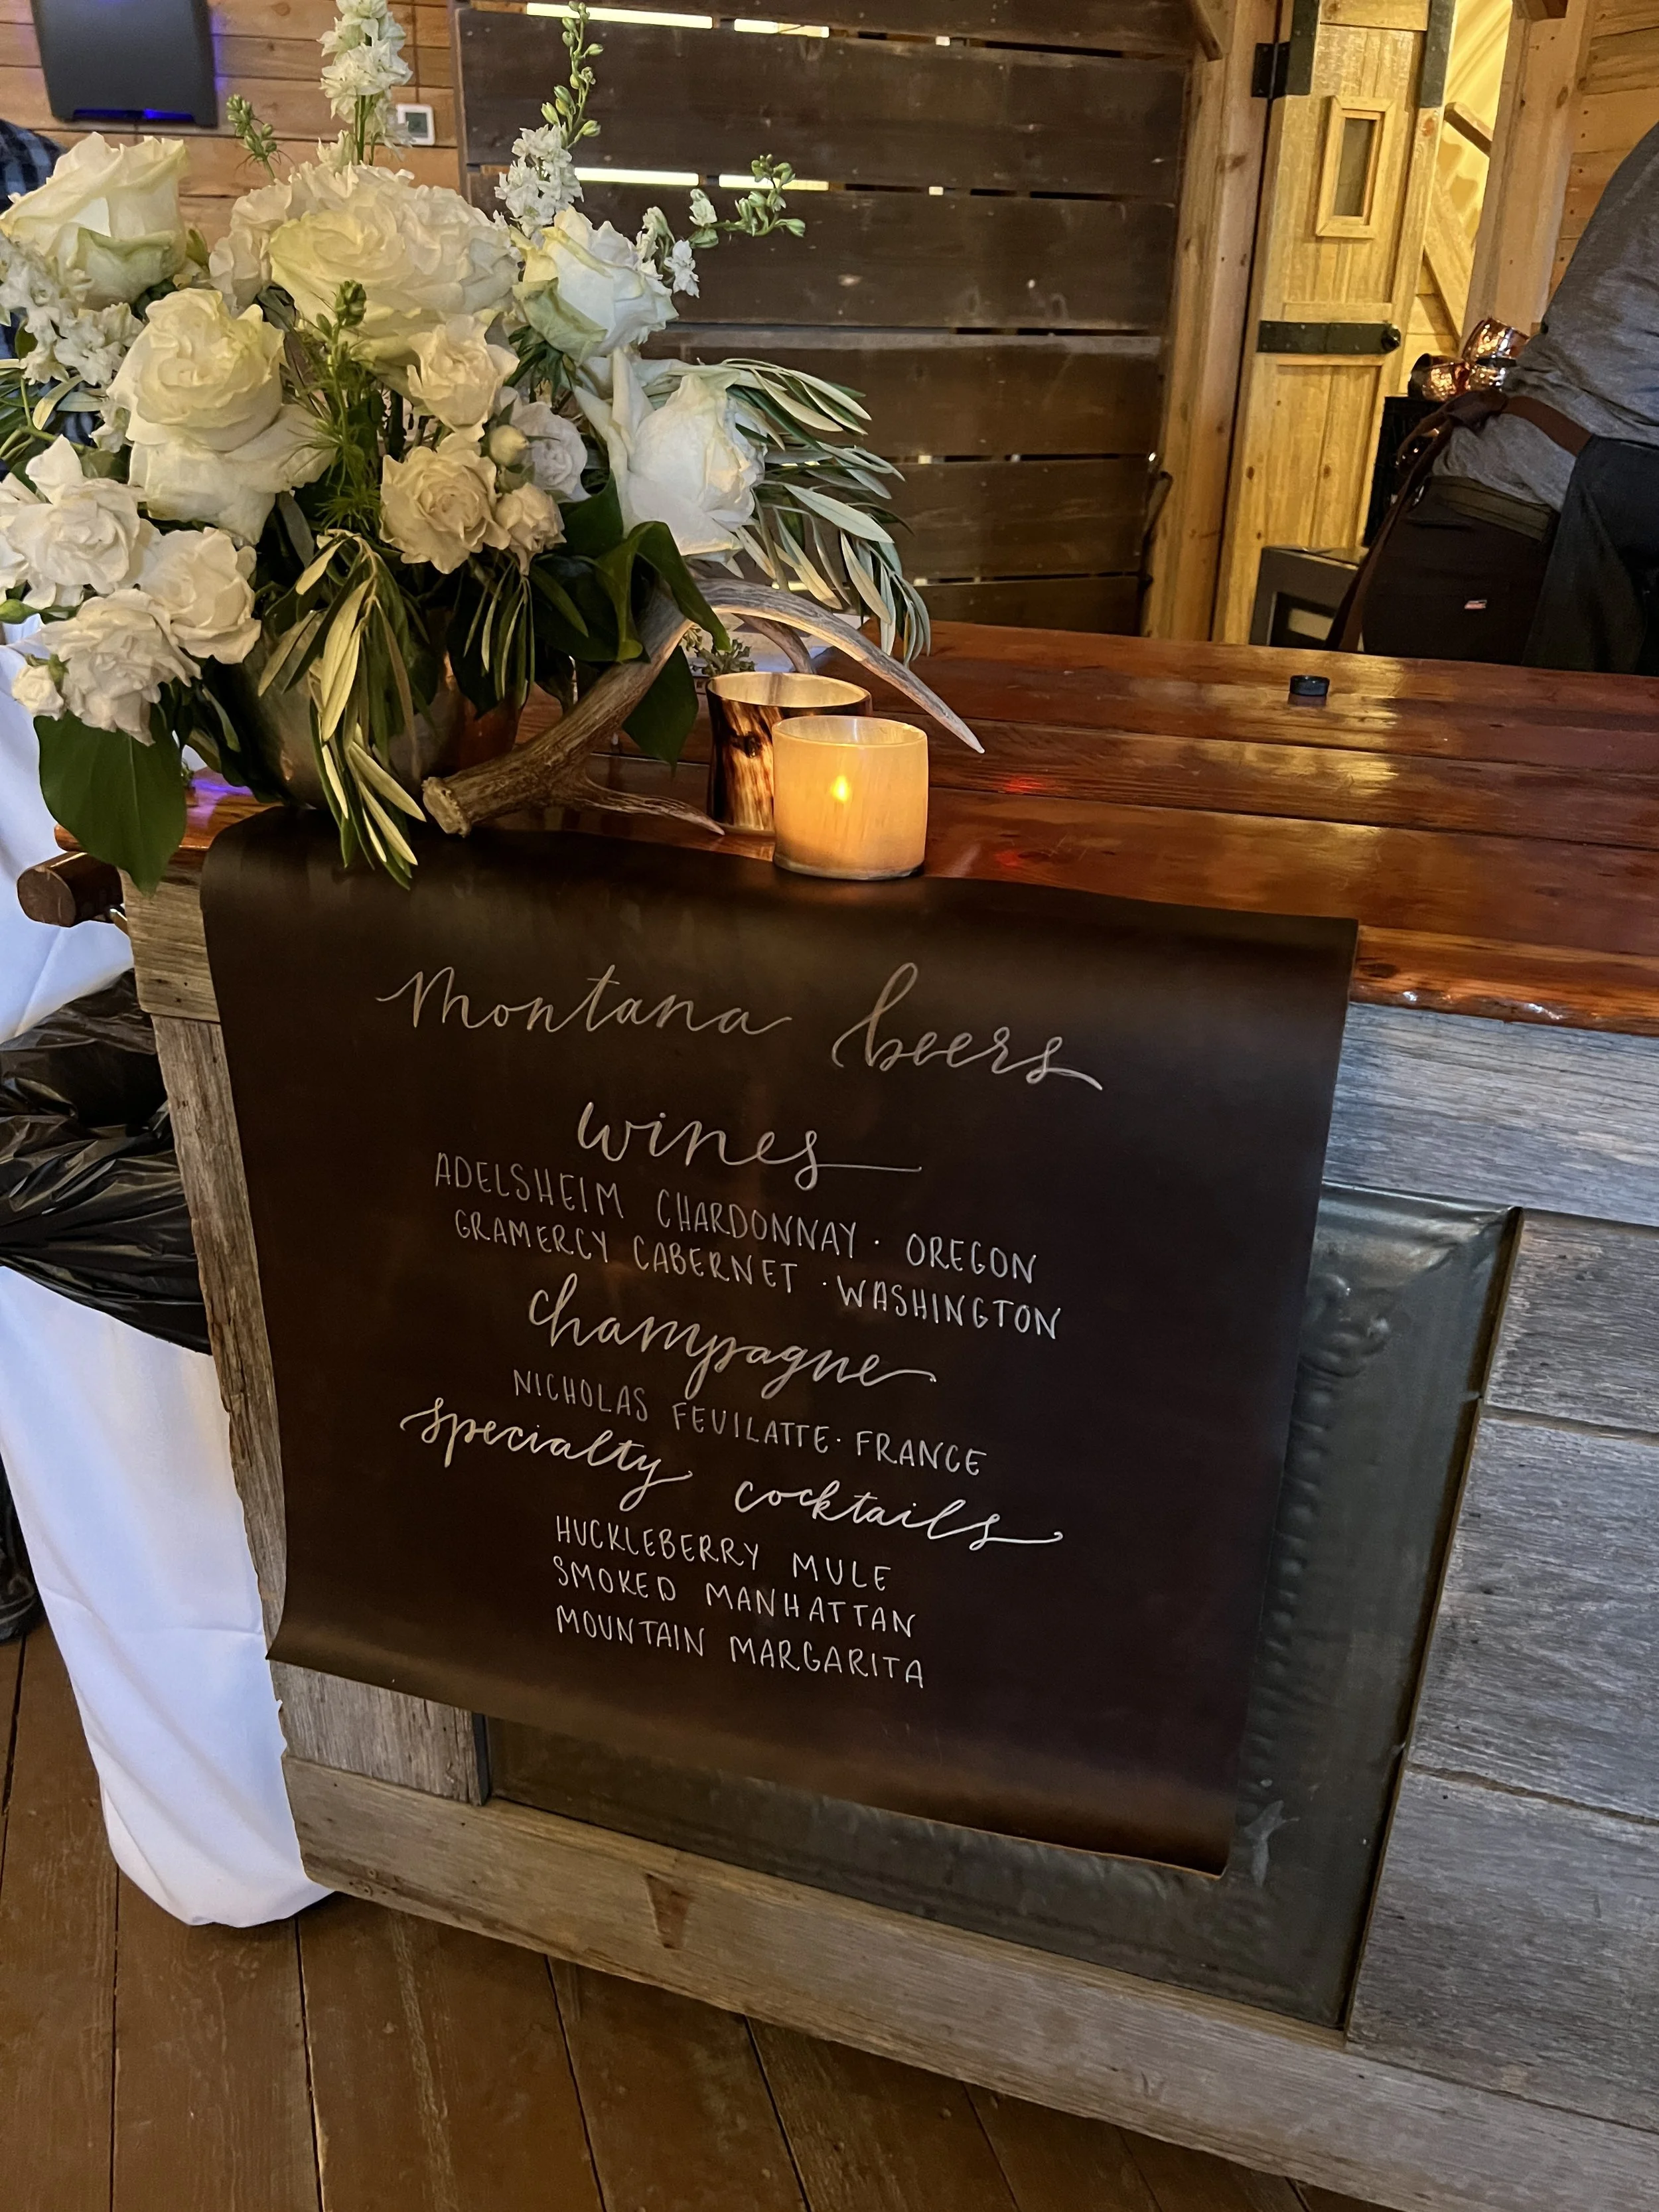 Montana beers
wines
ADELSHEIM CHARDONNAY · OREGON
GRAMERCY CABERNET · WASHINGTON
champagne
NICHOLAS FEUILATTE · FRANCE
specialty cocktails
HUCKLEBERRY MULE
SMOKED MANHATTAN
MOUNTAIN MARGARITA